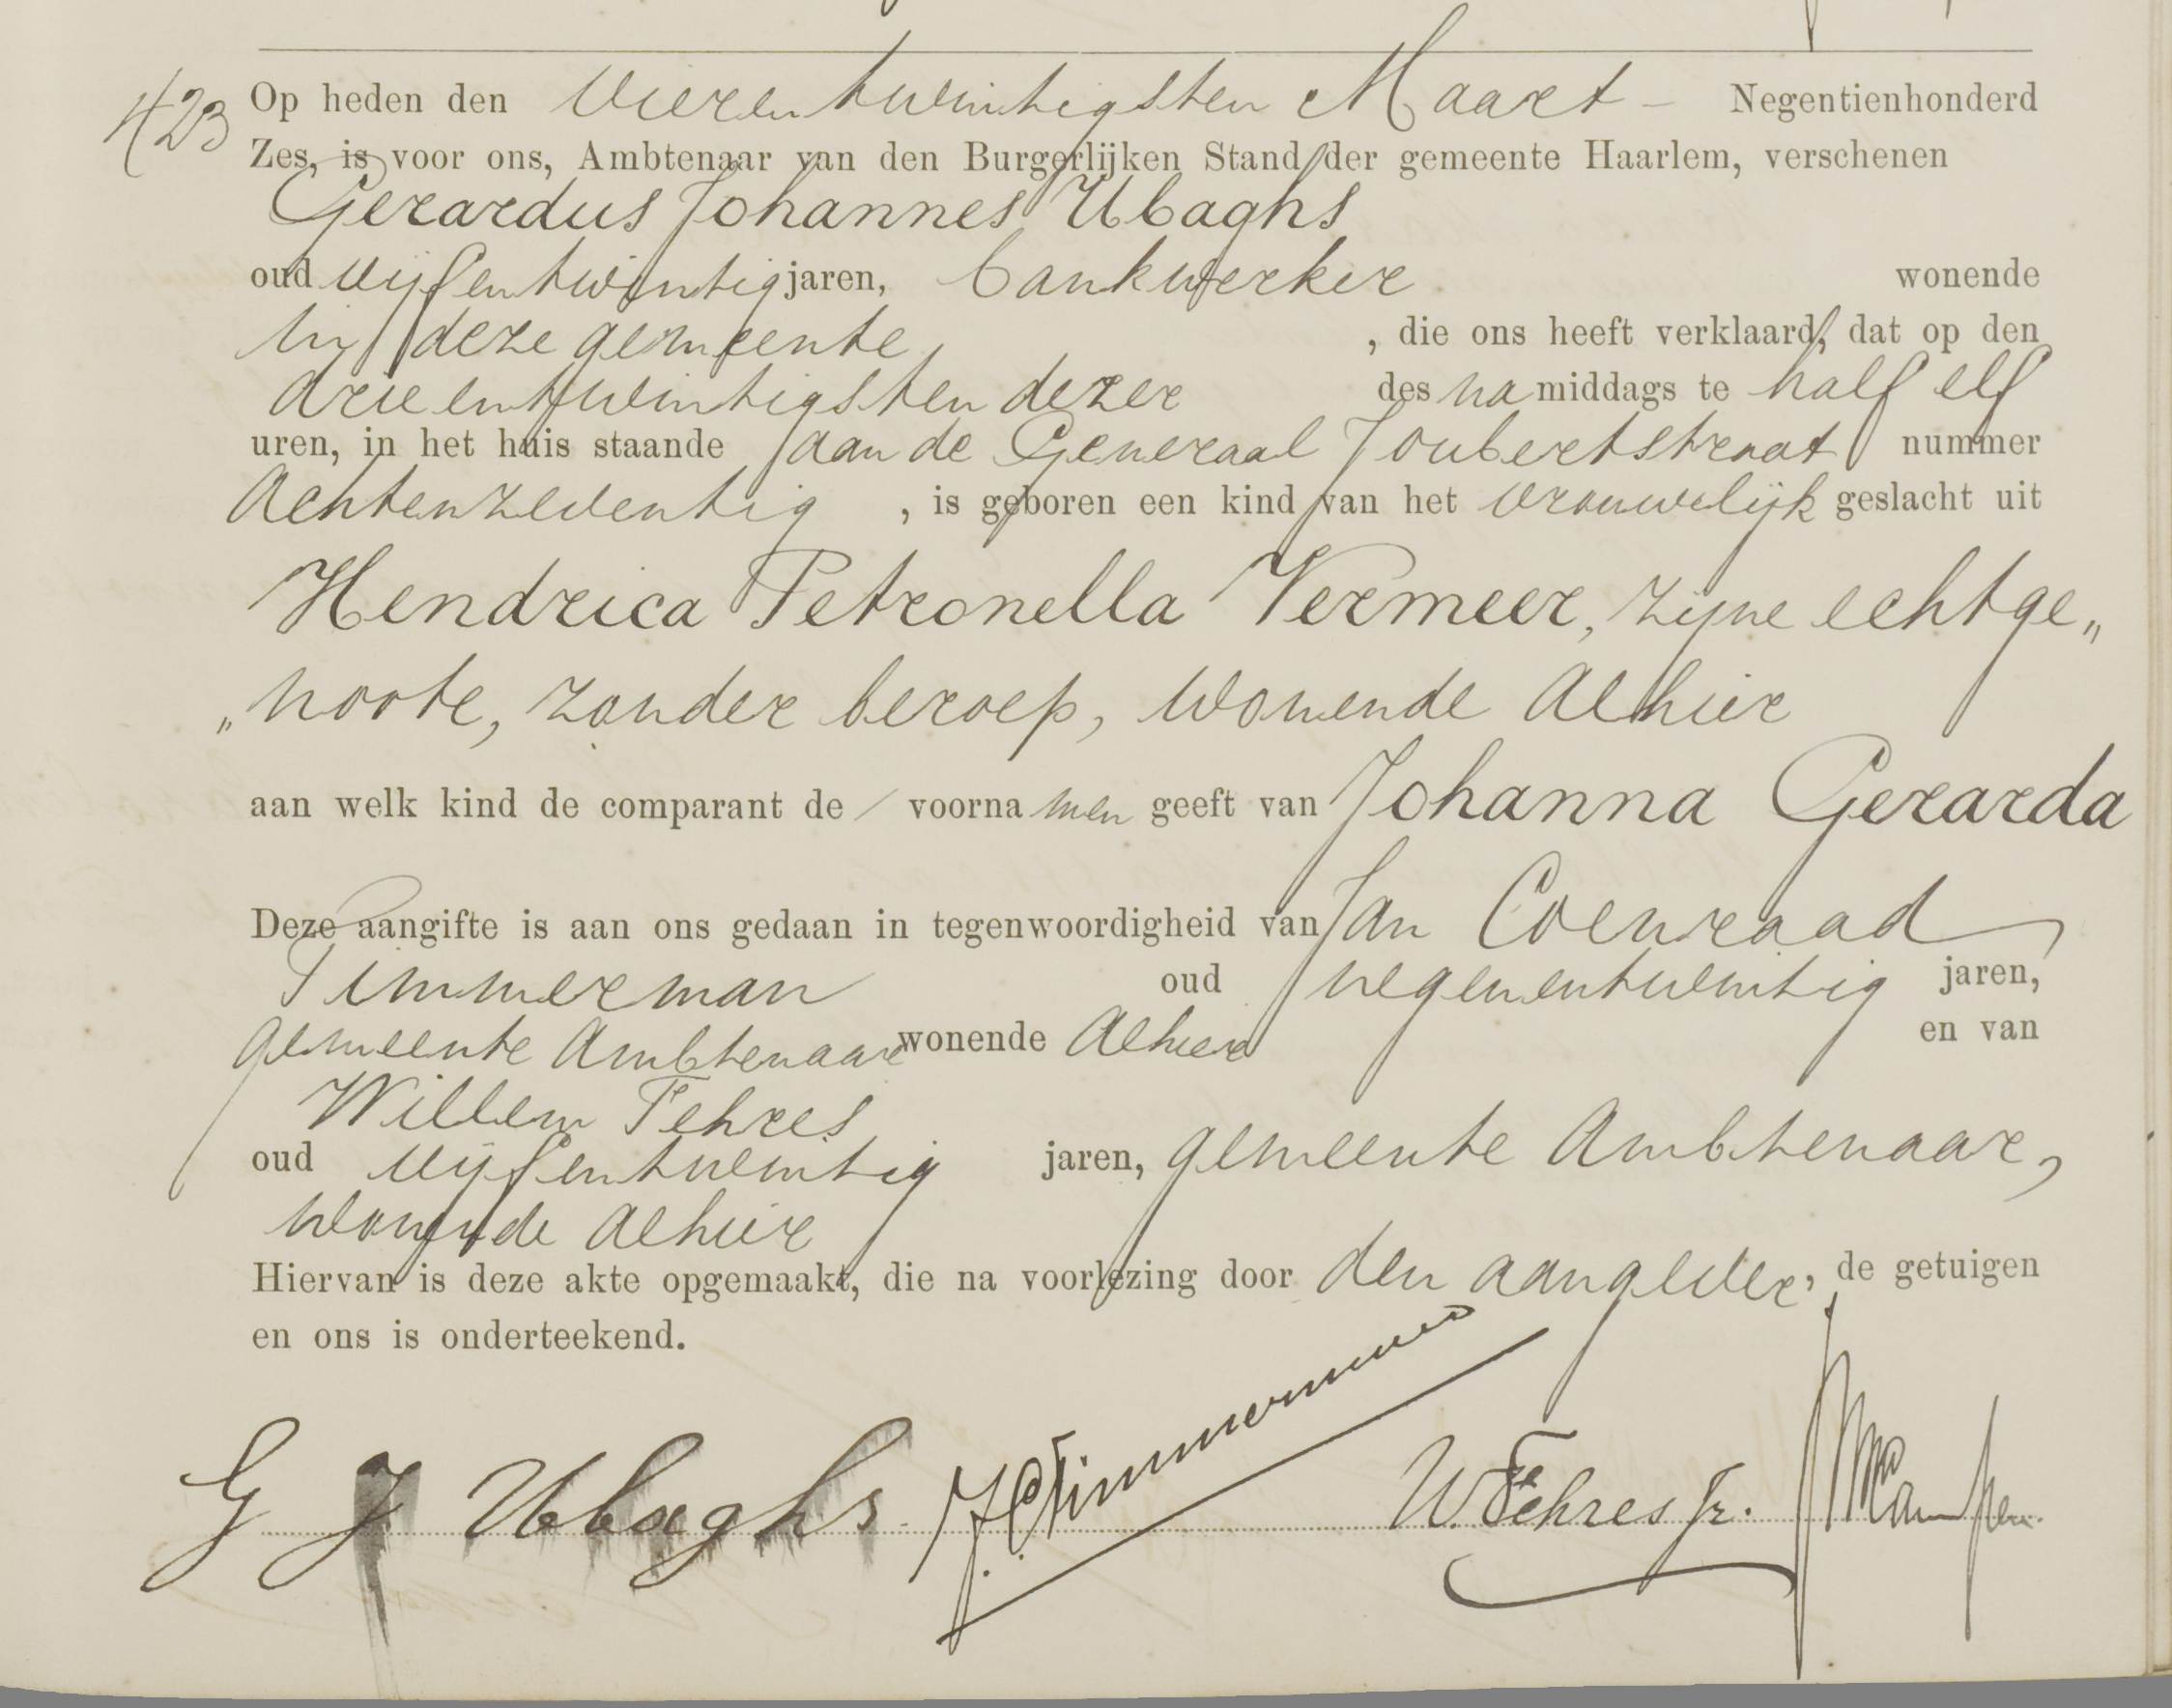 423 Op heden den Vierentwintigsten Maart - Negentienhonderd
Zes, is voor ons, Ambtenaar van den Burgerlijken Stand der gemeente Haarlem, verschenen
Gerardus Johannes Ubaghs
oud vijfentwintig jaren, bankwerker wonende
in deze gemeente, die ons heeft verklaard, dat op den
drieentwintigsten dezer des na middags te half elf
uren, in het huis staande aan de Generaal Joubertstraat nummer
Achtenzeventig, is geboren een kind van het vrouwelijk geslacht uit
Hendrica Petronella Vermeer, zijne echtge„
„noote, zonder beroep, wonende Alhier
aan welk kind de voornamen geeft van Johanna Gerarda
Deze aangifte is aan ons gedaan in tegenwoordigheid van Jan Coenraad
Timmerman oud negenentwintig jaren,
gemeente Ambtenaar wonende Alhier en van
Willem Fehres
oud vijfentwintig jaren, gemeente Ambtenaar,
wonende alhier
Hiervan is deze akte opgemaakt, die na voorlezing door den aangever, de getuigen
en ons is onderteekend.
G J Ubaghs JCTimmerman W. Fehres Jr.